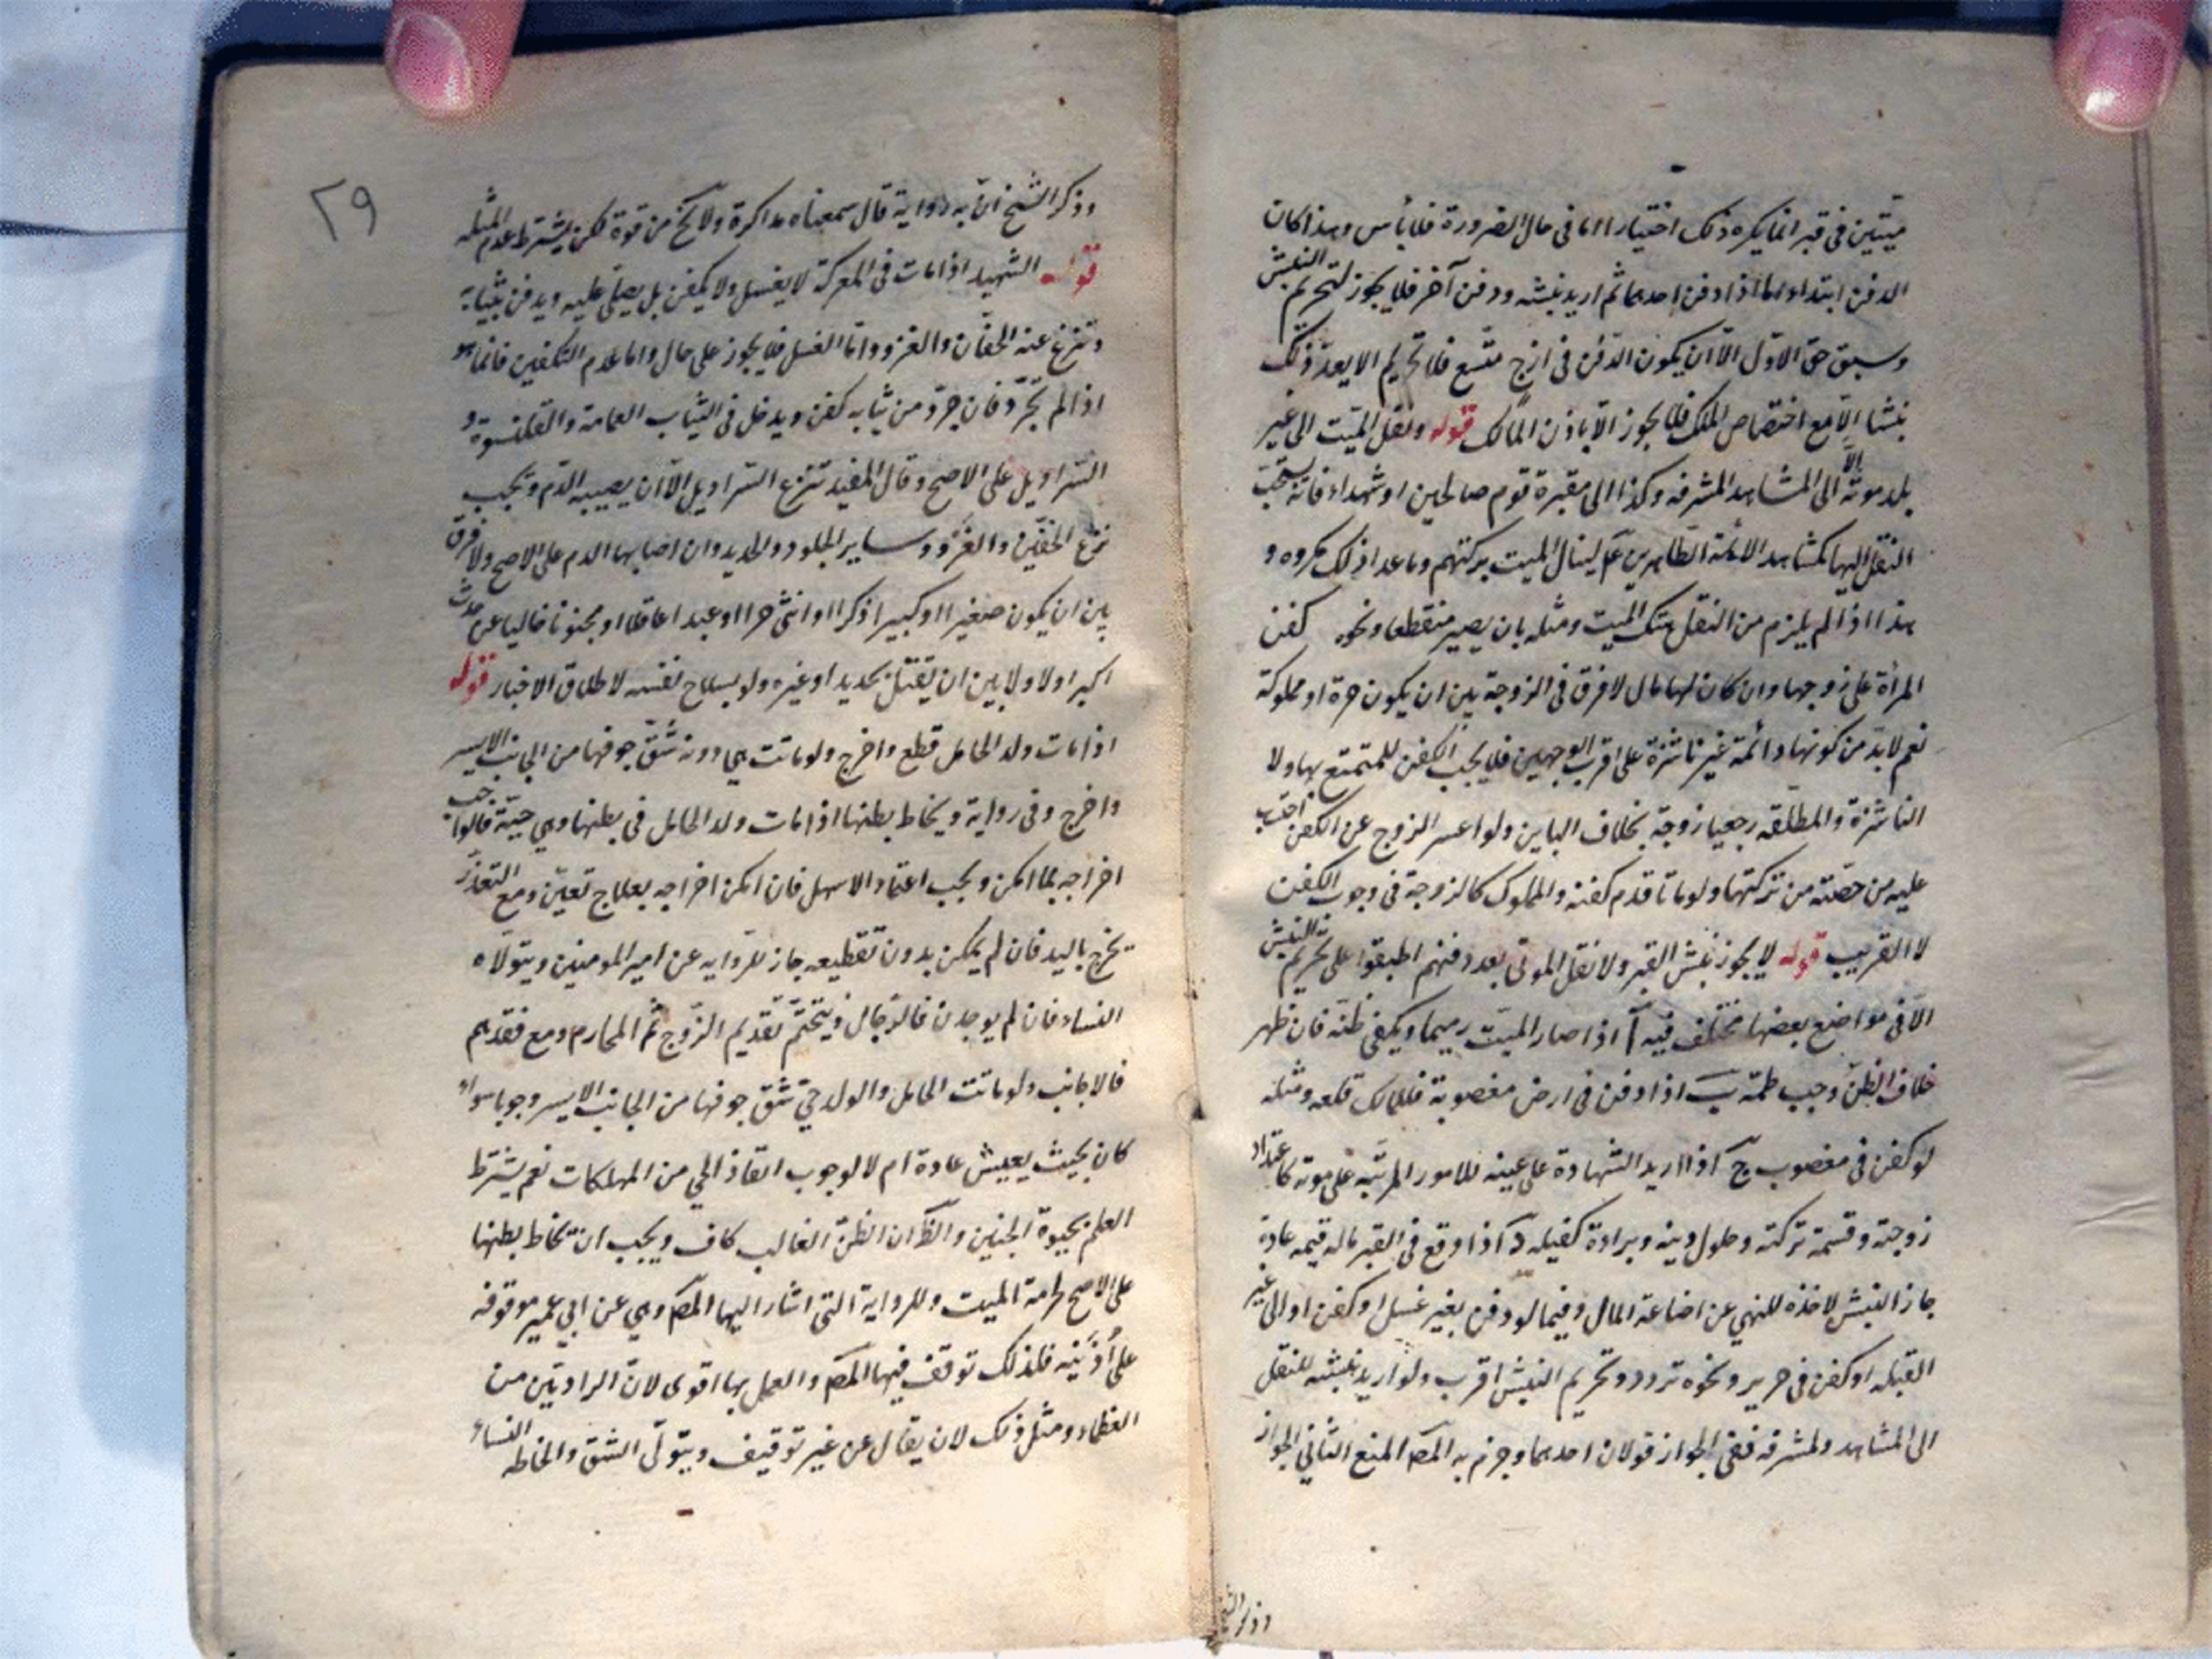 ميّتين في قبر انما يكره ذلك اختيارا اما في حال الضرورة فلا بأس وهذا كان
الدفن ابتداء اما اذا دفن احدهما ثم اريد نبشه ودفن آخر فلا يجوز لتحريم النبش
وسبق حق الاوّل الّا ان يكون الدّفن في ازج متّسع فلا تحريم اذ لا يعدّ ذلك
نبشا الّا مع اختصاص الملك فلا يجوز الّا باذن المالك قوله ونقل الميّت الى غير
بلد موته الّا الى المشاهد المشرفه وكذا الى مقبرة قوم صالحين او شهداء فانّه يستحبّ
النقل اليها كمشاهد الائمة الطّاهرين عم لينال الميت بركتهم وما عدا ذلك مكروه و
هذا اذا لم يلزم من النقل هتك الميت ومثله بان يصير منقطعا ونحوه كفن
المرأة على زوجها وان كان لها مال لا فرق في الزوجة بين ان يكون حرة او مملوكة
نعم لا بدّ من كونها دائمة غير ناشزة على اقرب الوجهين فلا يجب الكفن للمتمتع بها ولا
الناشزة والمطلّقه رجعيا زوجة بخلاف الباين ولو اعسر الزوج عن الكفن احتسب
عليه من حصّته من تركتها ولو ماتا قدم كفنه والمملوك كالزوجة في وجوب الكفن
لا القريب قوله لا يجوز نبش القبر ولا نقل الموتى بعد دفنهم اطبقوا على تحريم النبش
الّا في مواضع بعضها مختلف فيه ا اذا صار الميّت رميما ويكفي ظنّه فان ظهر
خلاف الظنّ وجب طمّه ب اذا دفن في ارض مغصوبة فللمالك قلعه ومثله
لو كفن في مغصوب ج اذا اريد الشهادة على عينه للامور المرتبّه على موته كاعتداد
زوجته وقسمة تركته وحلول دينه وبراءة كفيله د اذا وقع في القبر ما له قيمه عادة
جاز النبش لاخذه للنهي عن اضاعة المال وفيما لو دفن بغير غسل او كفن او الى غير
القبله او كفن في حرير ونحوه تردد وتحريم النبش اقرب ولو اريد نبشه للنقل
الى المشاهد المشرفه ففي الجواز قولان احدهما وجزم به المصـ المنع الثاني الجواز
وذكر الشيخ
٢٩
وذكر الشيخ انّ به رواية قال سمعناه مذاكرة ولا يخ من قوة لكن يشترط عدم المثله
قوله الشهيد اذا مات في المعركة لا يغسل ولا يكفن بل يصلّى عليه ويدفن بثيابه
وتنزع عنه الخفّان والفرو وامّا الغسل فلا يجوز على حال واما عدم التكفين فانّما هو
اذا لم يجرّد فان جرّد من ثيابه كفن ويدخل في الثياب العمامة والقلنسوة و
السّراويل على الاصح وقال المفيد تنزع السّراويل الّا ان يصيبه الدّم ويجب
نزع الخفّين والفرو وساير الجلود والحديد وان اصابها الدم على الاصح ولا فرق
بين ان يكون صغيرا او كبيرا ذكرا او انثى حرا او عبدا عاقلا او مجنونا خاليا عن حدث
اكبر اولا ولا بين ان يقتل بحديد او غيره ولو بسلاح نفسه لاطلاق الاخبار قوله
اذا مات ولد الحامل قطع واخرج ولو ماتت هي دونه شقّ جوفها من الجانب الايسر
واخرج وفي رواية ويخاط بطنها اذا مات ولد الحامل في بطنها وهي حيّة قالوا يجب
اخراجه بما امكن ويجب اعتماد الاسهل فان امكن اخراجه بعلاج تعيّن ومع التعذّر
يخرج باليد فان لم يمكن بدون تقطيعه جاز للرّوايه عن امير المومنين ويتولّاه
النساء فان لم يوجدن فالرّجال ويتحتّم تقديم الزّوج ثمّ المحارم ومع فقدهم
فالاجانب ولو ماتت الحامل والولد حيّ شقّ جوفها من الجانب الايسر وجوبا سواء
كان بحيث يعيش عادة ام لا لوجوب انقاذ الحي من المهلكات نعم يشترط
العلم بحيوة الجنين والظّ ان الظنّ الغالب كاف ويجب ان تخاط بطنها
على الاصح لحرمة الميت وللرواية التي اشار اليها المصـ وهي عن ابي عمير موقوفه
على أُذَيْنِه فلذلك توقف فيها المصـ والعمل بها اقوى لان الراويين من
العظماء ومثل ذلك لان يقال عن غير توقيف ويتولّى الشق والخياطه النساء